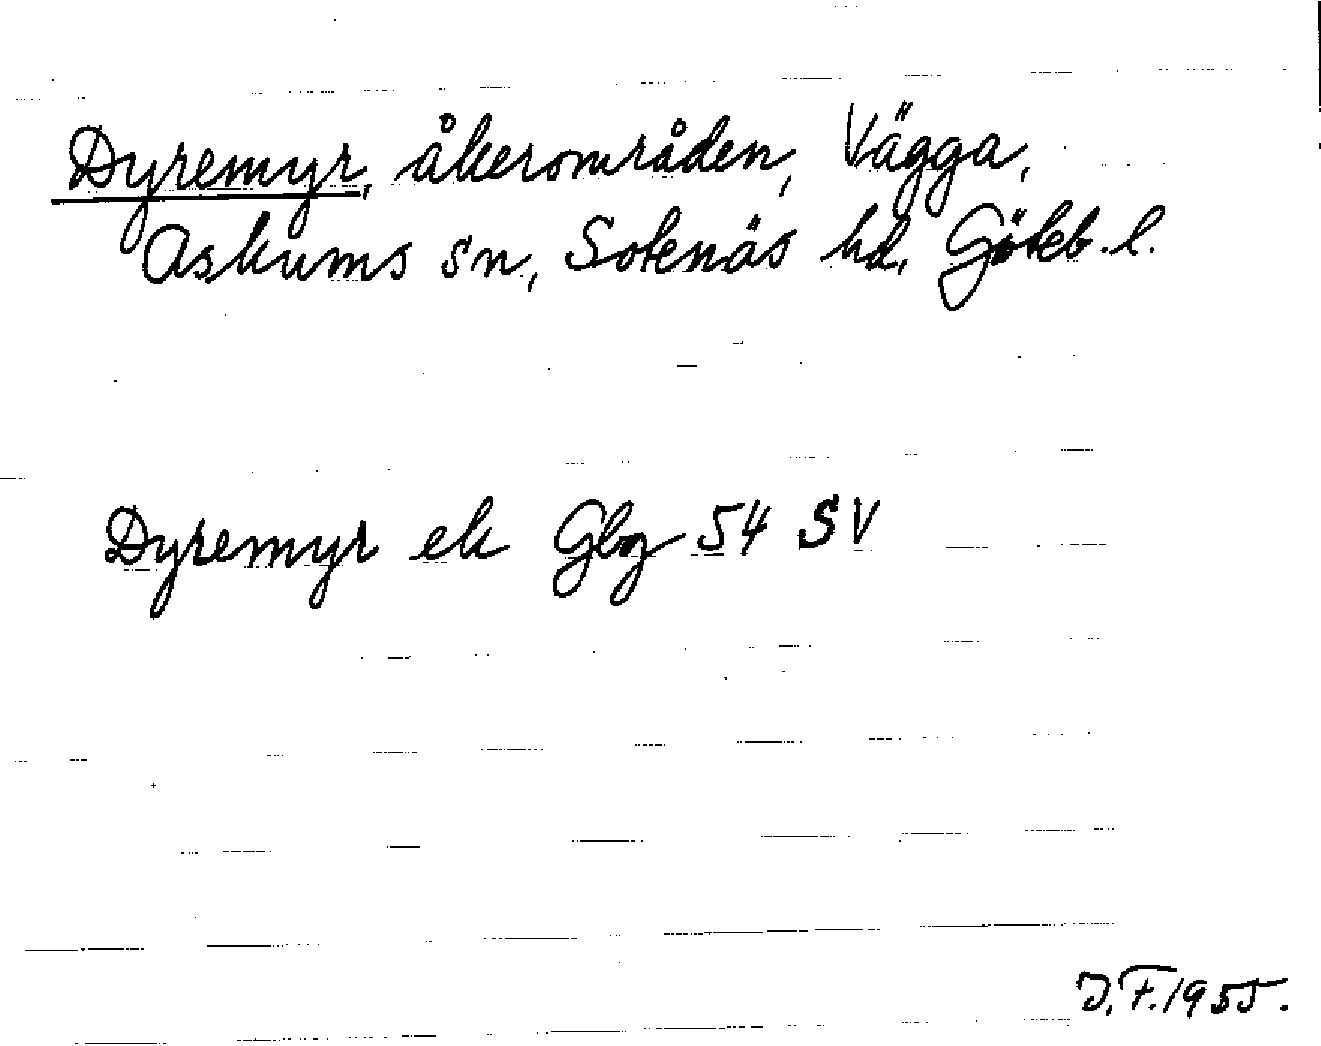 Dyremyr, åkerområden, Vägga,
Askums sn, Sotenäs hd, Göteb. l.
Dyremyr ek Gbg 54 SV
J.F. 1955.